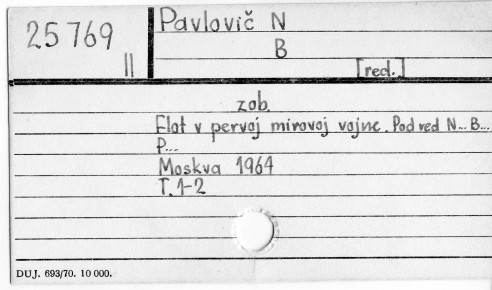 25 769
II
Pavlovič N
B
[red.]
zob.
Flot v pervoj mirovoj vojne. Pod red N... B...
P...
Moskva 1964
T. 1-2
DUJ. 693/70. 10 000.